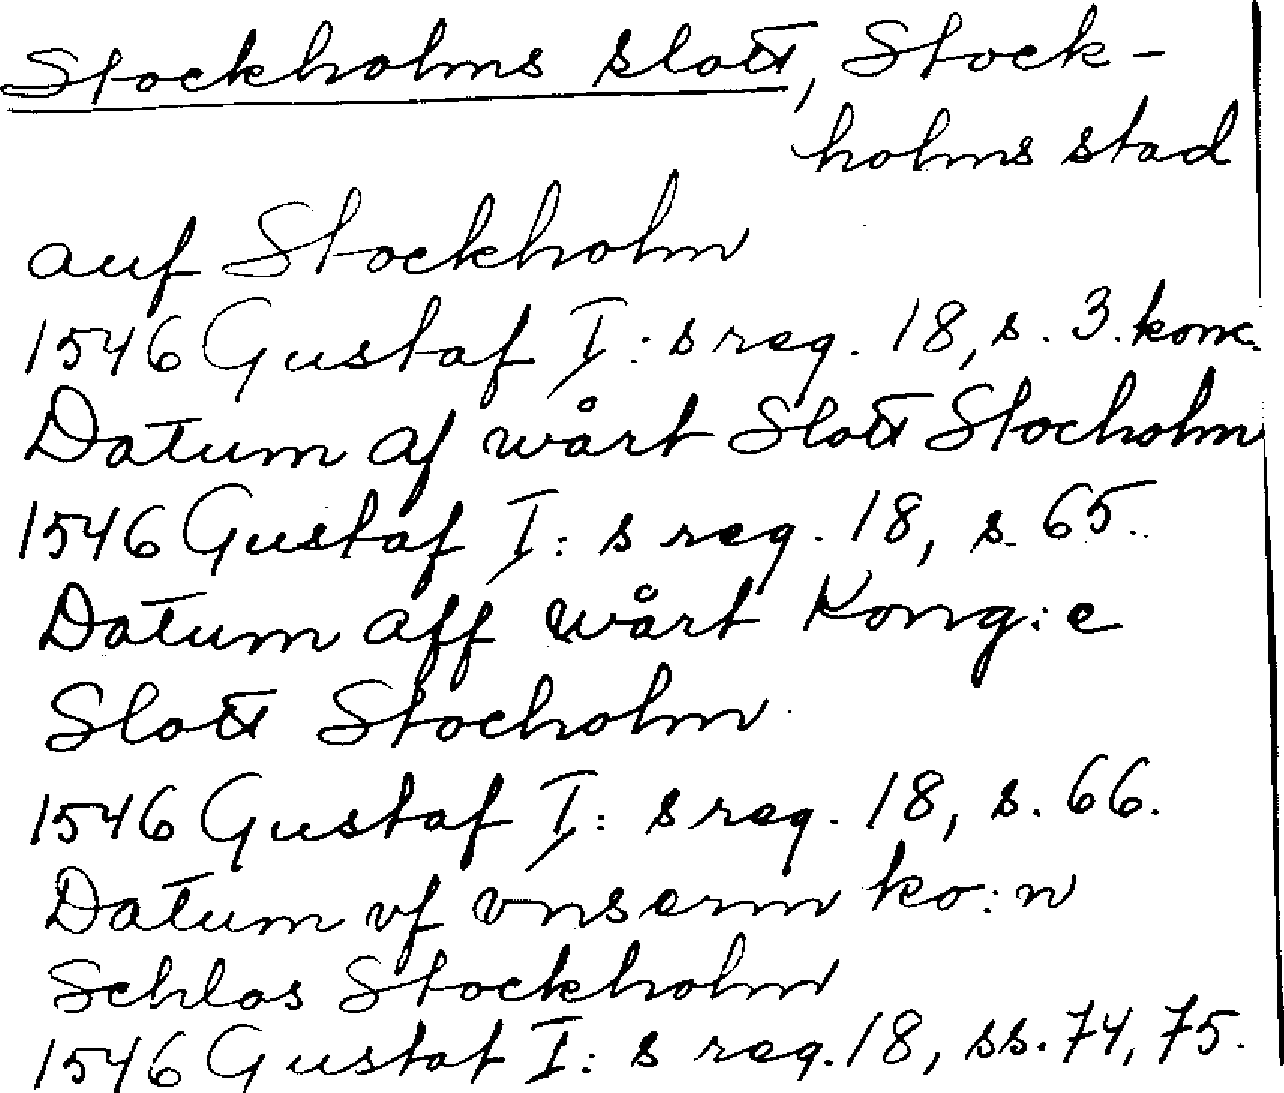 Stockholms slott, Stock-
holms stad
auf Stockholm
1546 Gustaf I:s reg. 18, s. 3. konc.
Datum af wårt Slott Stocholm
1546 Gustaf I:s reg. 18, s. 65.
Datum aff wårt Kong:e
Slott Stocholm
1546 Gustaf I:s reg. 18, s. 66.
Datum vf vnserm ko:n
Schlos Stockholm
1546 Gustaf I:s reg. 18, ss. 74, 75.